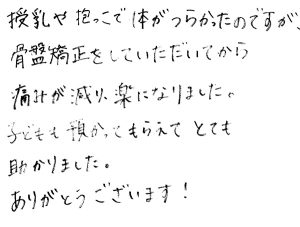 授乳や抱っこで体がつらかったのですが、
骨盤矯正をしていただいてから
痛みが減り、楽になりました。
子どもも預かってもらえてとても
助かりました。
ありがとうございます!